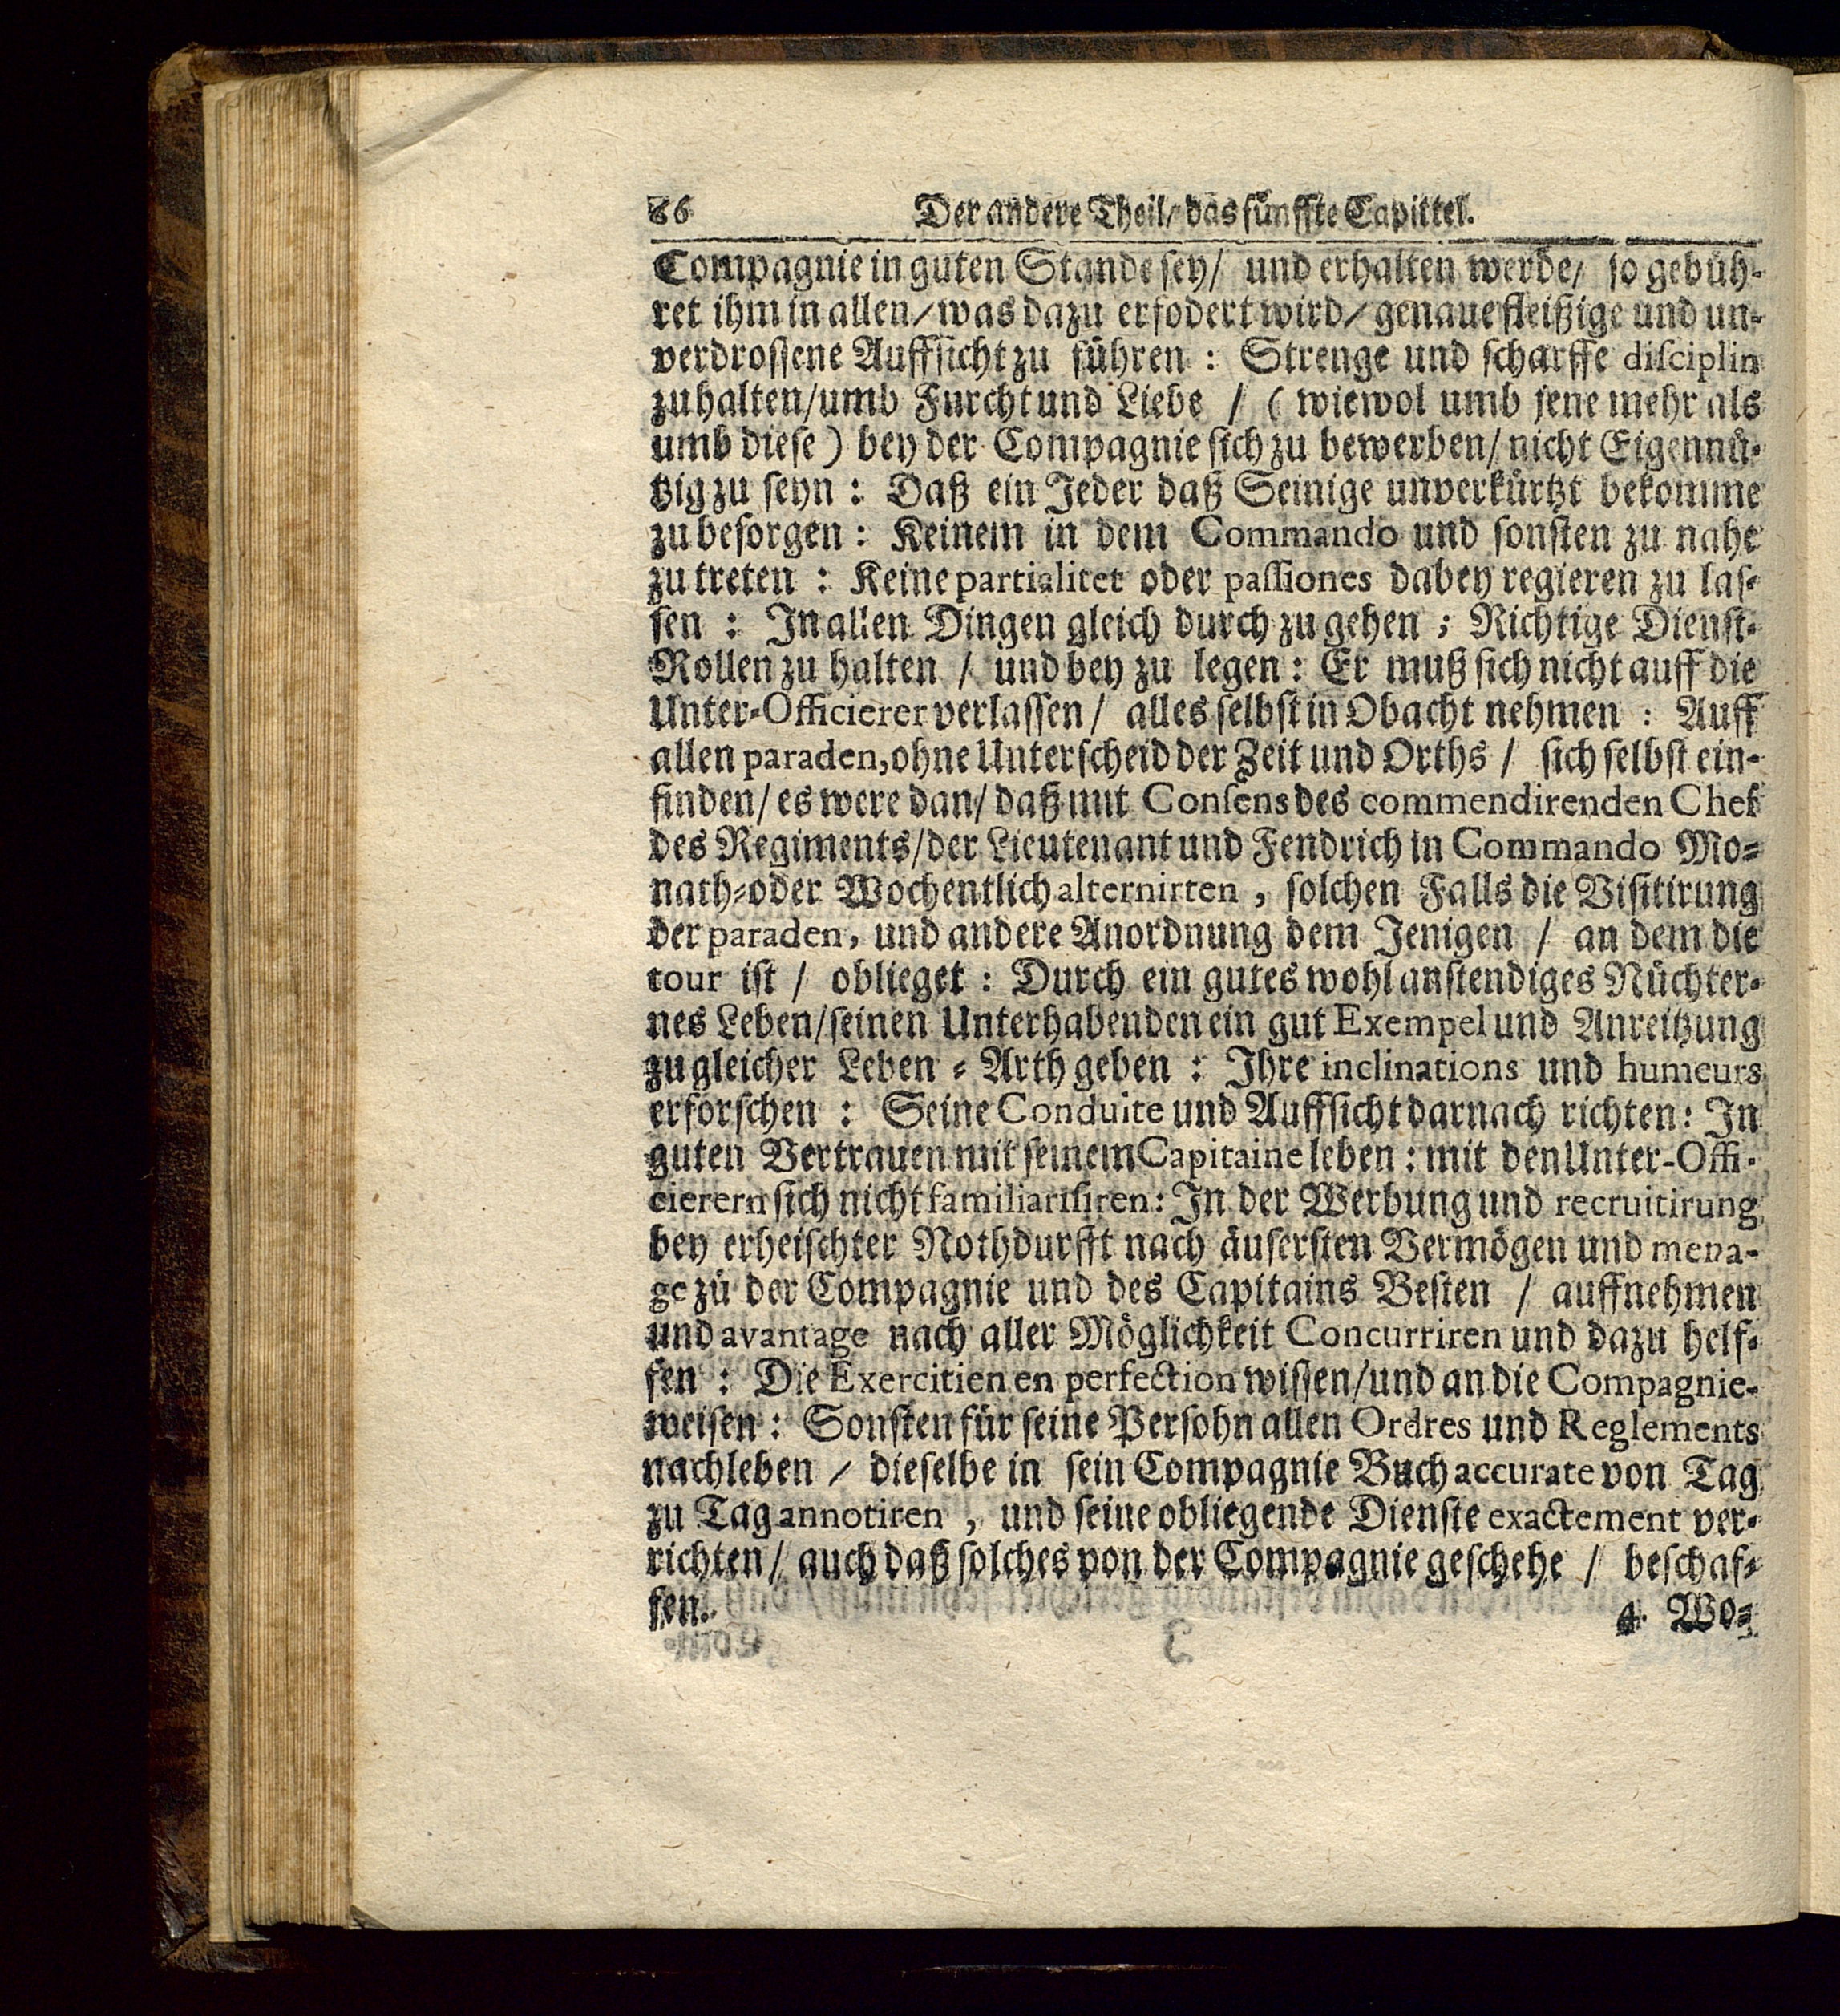 66 Der andere Theil/ das fünffte Capittel.
Compagnie in guten Stande sey/ und erhalten werde/ so gebüh-
ret ihm in allen/ was dazu erfodert wird/ genaue fleißige und un-
verdrossene Auffsicht zu führen : Strenge und scharffe disciplin
zu halten/umb Furcht und Liebe / ( wiewol umb jene mehr als
umb diese ) bey der Compagnie sich zu bewerben/ nicht Eigennü-
tzig zu seyn : Daß ein Jeder daß Seinige unverkürtzt bekomme
zu besorgen : Keinem in dem Commando und sonsten zu nahe
zu treten : Keine partialitet oder passiones dabey regieren zu las-
sen : In allen Dingen gleich durch zu gehen ; Richtige Dienst-
Rollen zu halten / und bey zu legen : Er muß sich nicht auff die
Unter-Officierer verlassen / alles selbst in Obacht nehmen : Auff
allen paraden, ohne Unterscheid der Zeit und Orths / sich selbst ein-
finden/ es were dan/ daß mit Consens des commendirenden Chef
des Regiments/der Lieutenant und Fendrich in Commando Mo-
nath-oder Wochentlich alternirten , solchen Falls die Visitirung
der paraden, und andere Anordnung dem Jenigen / an dem die
tour ist / oblieget : Durch ein gutes wohl anstendiges Nüchter-
nes Leben/seinen Unterhabenden ein gut Exempel und Anreitzung
zu gleicher Leben - Arth geben : Ihre inclinations und humeurs
erforschen : Seine Conduite und Auffsicht darnach richten : In
guten Vertrauen mit seinem Capitaine leben : mit den Unter-Offi-
cierern sich nicht familiarisiren : In der Werbung und recruitirung
bey erheischter Nothdurfft nach äusersten Vermögen und mena-
ge zu der Compagnie und des Capitains Besten / auffnehmen
und avantage nach aller Möglichkeit Concurriren und dazu helf-
fen : Die Exercitien en perfection wissen/und an die Compagnie-
weisen : Sonsten für seine Persohn allen Ordres und Reglements
nachleben / dieselbe in sein Compagnie Buch accurate von Tag
zu Tag annotiren , und seine obliegende Dienste exactement ver-
richten / auch daß solches von der Compagnie geschehe / beschaf-
fen.
4. Wo-